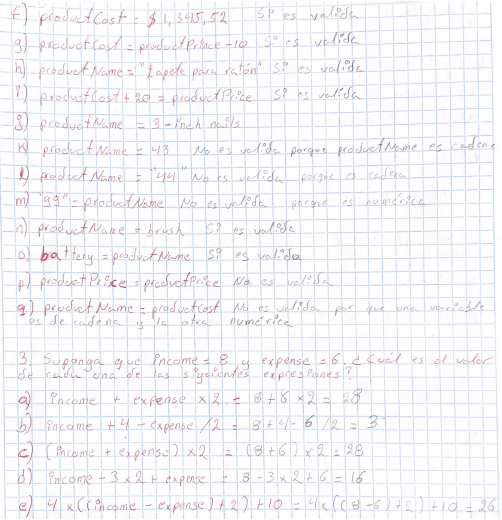 f) productCost = $1,345,52 Si es valida
g) productCost = productPrince - 10 Si es valida
h) productName = "tapete para ratón" Si es valida
i) productCost + 20 = productPrice Si es valida
j) productName = 3-inch nails
k) productName = 43 No es valida porque productName es cadena
l) productName = "44" No es valida porque es cadena
m) "99" = productName No es valida porque es numérica
n) productName = brush Si es valida
o) battery = productName Si es valida
p) productPrice = productPrice No es valida
q) productName = productCost No es valida por que una variable
es de cadena y la otra numérica
3. Suponga que income = 8 y expense = 6. ¿Cuál es el valor
de cada una de las siguientes expresiones?
a) income + expense x 2 = 8 + 6 x 2 = 28
b) income + 4 - expense / 2 = 8 + 4 - 6 / 2 = 3
c) (income + expense) x 2 = (8 + 6) x 2 = 28
d) income - 3 x 2 + expense = 8 - 3 x 2 + 6 = 16
e) 4 x ((income - expense) + 2) + 10 = 4 x ((8 - 6) + 2) + 10 = 26